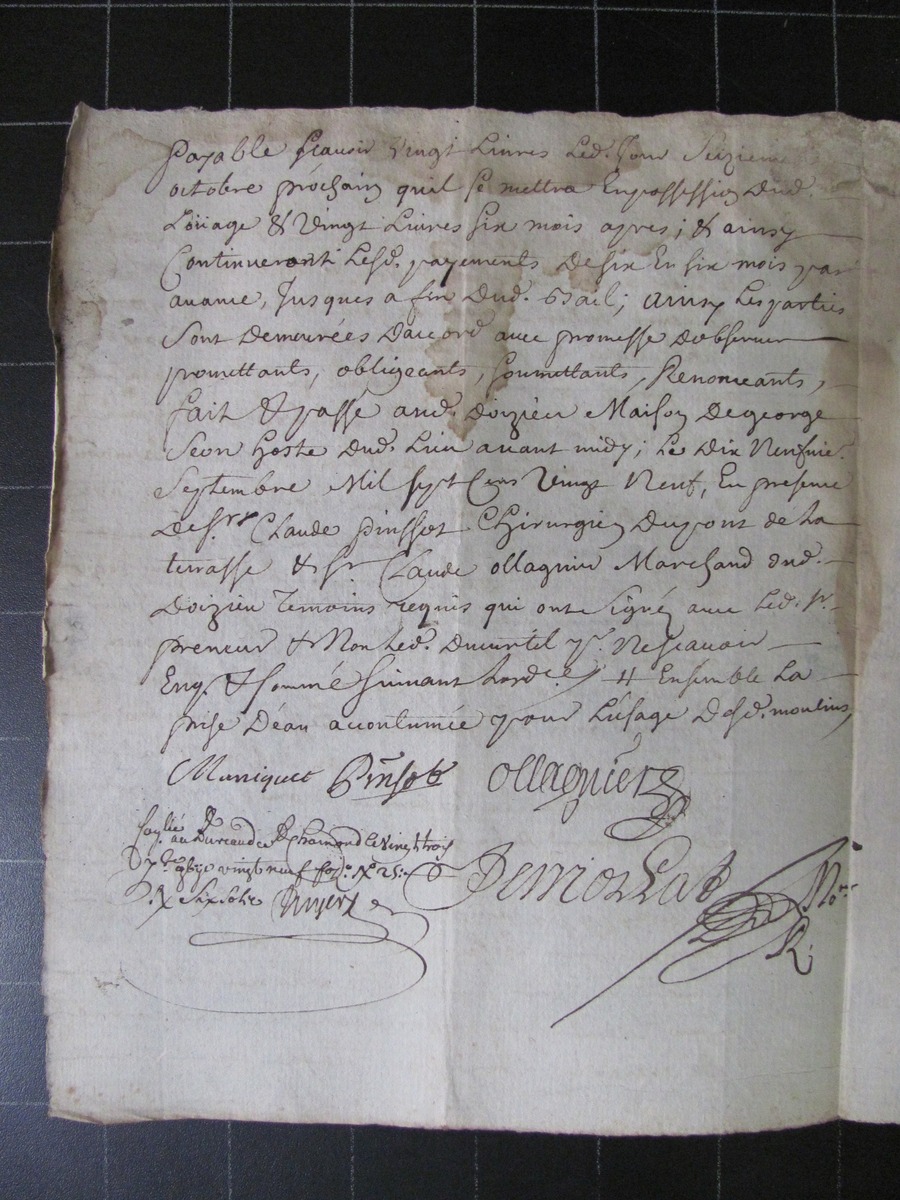 payable scavoir vingt Livres Led. Jour Seizieme
octobre prochain quil se mettra En possession Dud.
Loüage & Vingt Livres six mois apres; & ainsy
Continueront Lesd. payements de six En six mois par
avance, Jusques a fin Dud. Bail; ainsy Les parties
Sont Demeurées Daccord avec promesse Dobserver
promettants, obligeants, soumettants, Renonceants,
fait & passé aud. Doizieu Maison De george
Seon hoste Dud. Lieu avant midy; Le Dix Neufvie.
Septembre Mil sept Cens Vingt Neuf, En presence
de sr. Claude pinssot Chirurgien Du pont de La
terrasse & sr. Claude ollagnier Marchand dud.
Doizieu Temoins requis qui ont Signé avec Led. sr.
preneur & Non Led. Ducurtil pr. Nescavoir
Enq. & sommé suivant Lordce. # Ensemble La
prise Déau accoutumée pour Lúsage Desd. moulins,
Maniquet Pinsot ollagnier
au Bureau de St. Chamond le vingt trois
7bre vingt neuf
R. Six Sols
Nore.
R.